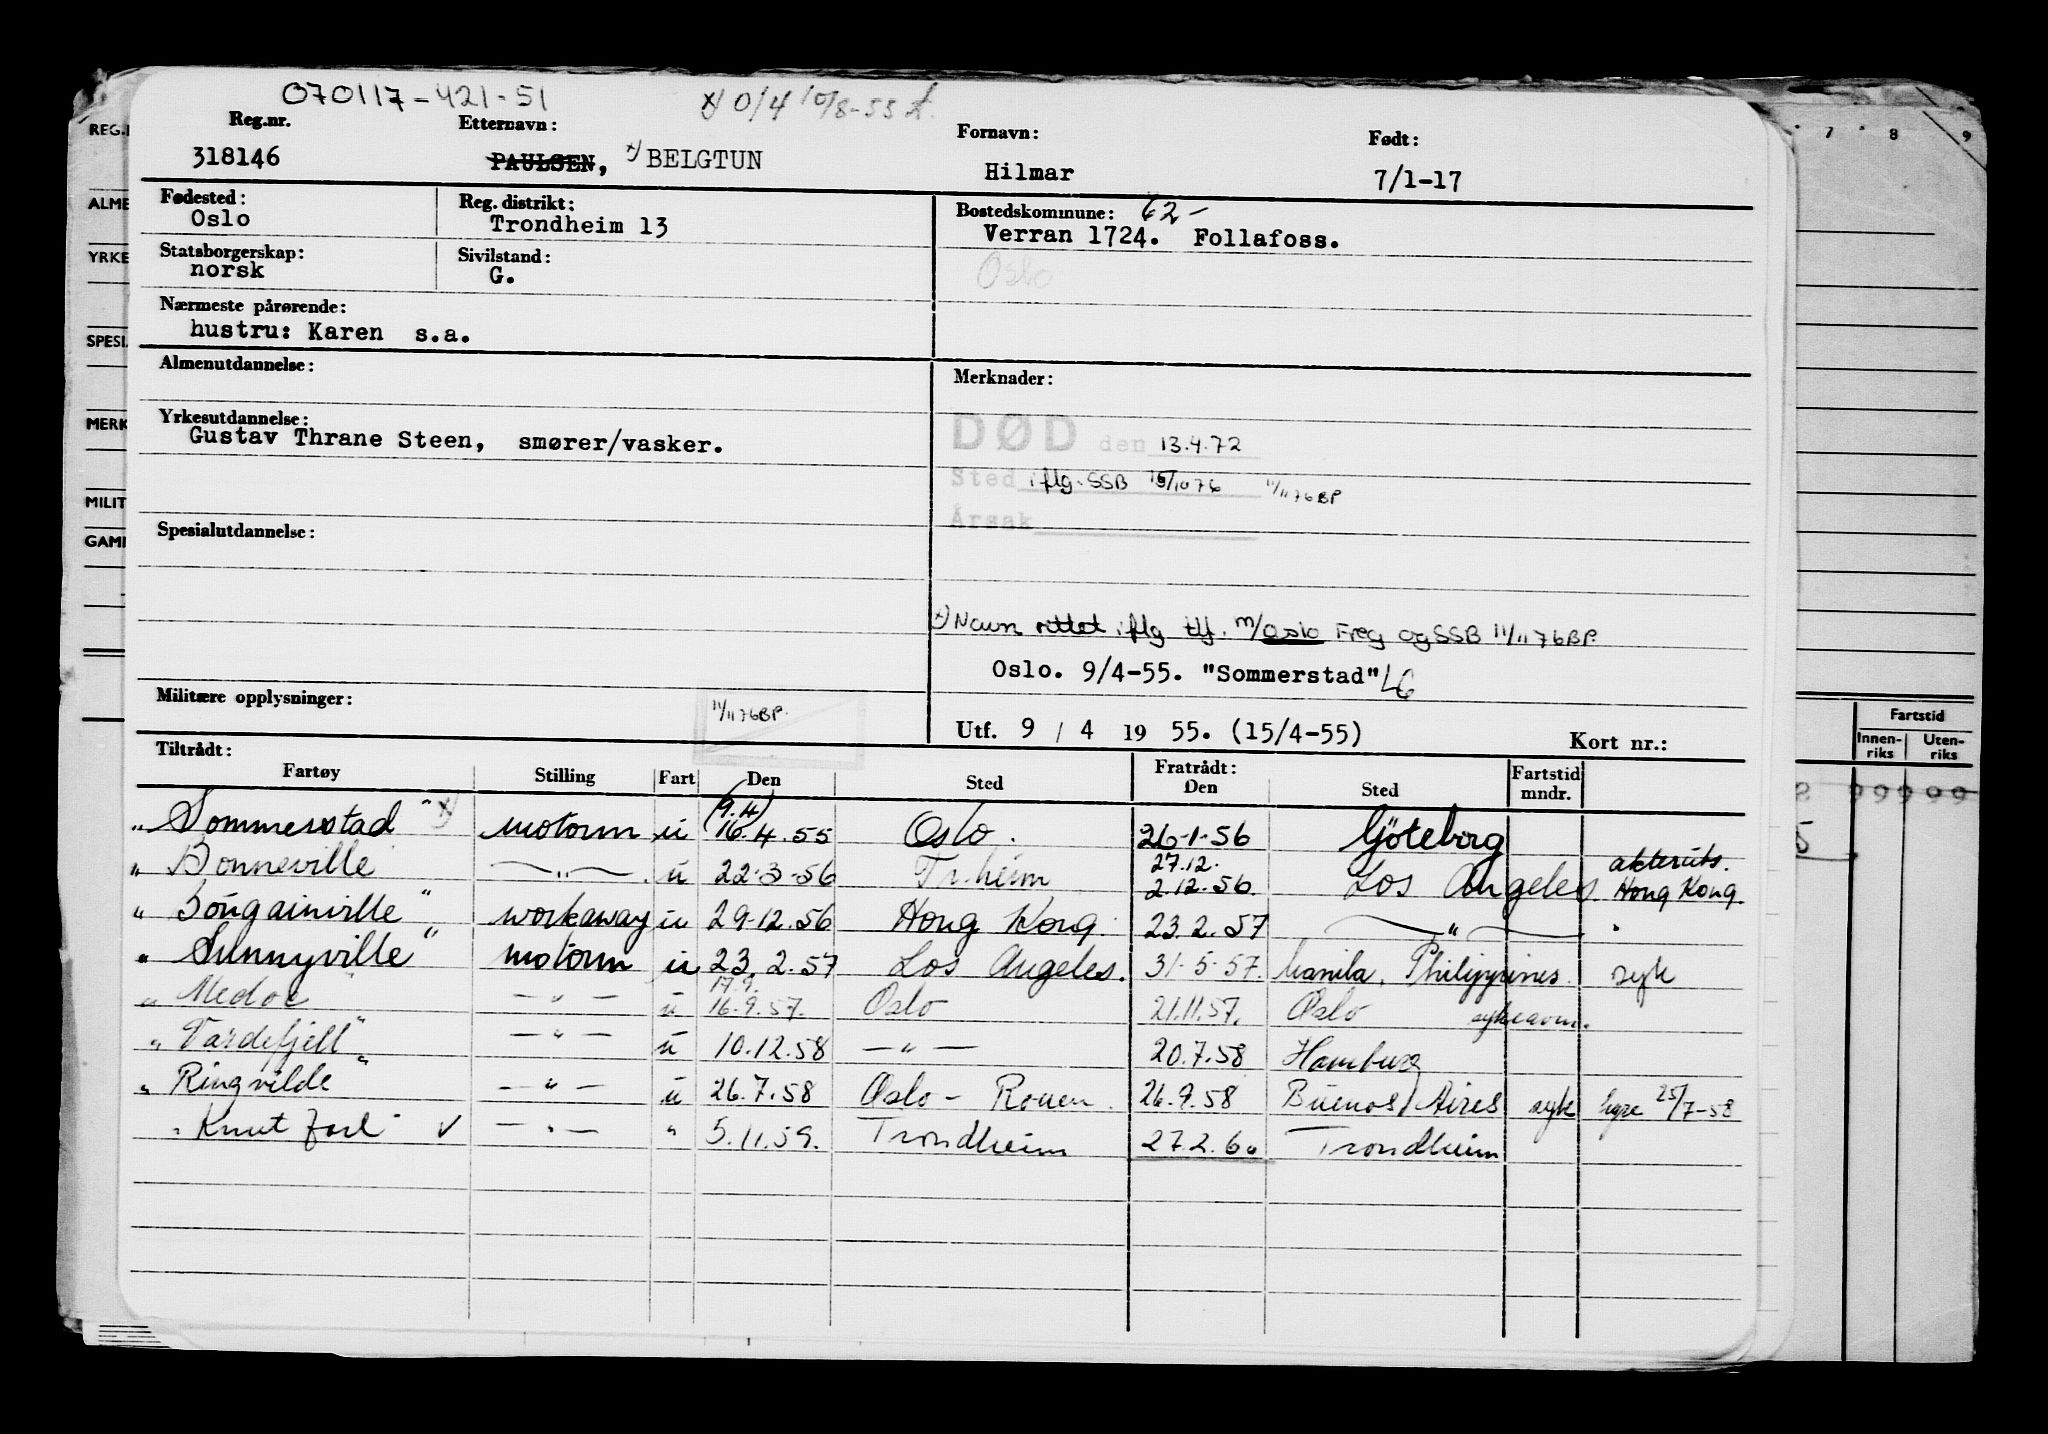 070117-421-51
x) 0/4 10/8-55
Reg.nr. Etternavn: Fornavn: Født:
318146 PAULSEN, x) BELGTUN Hilmar 7/1-17
Fødested: Reg. distrikt: Bostedskommune: 62-
Oslo Trondheim 13 Verran 1724. Follafoss.
Statsborgerskap: Sivilstand: Oslo
norsk G.
Nærmeste pårørende:
hustru: Karen s.a.
Almenutdannelse: Merknader:
Yrkesutdannelse: DØD den 13.4.72
Gustav Thrane Steen, smører/vasker.
Sted iflg. SSB 15/10 76 11/11 76 BP
Årsak
Spesialutdannelse:
x) Navn rettet iflg tlf. m/Oslo Freg og SSB 11/11 76 BP.
Oslo. 9/4-55. "Sommerstad" LG
Militære opplysninger: 11/11 76 BP.
Utf. 9 / 4 19 55. (15/4-55) Kort nr.:
Tiltrådt: Fratrådt:
Fartøy Stilling Fart Den Sted Den Sted Fartstid mndr.
"Sommerstad" x) motorm u (9.4) 16.4.55 Oslo. 26-1-56 Göteborg
"Bonneville -"- u 22-3-56 Tr.heim 27.12. 2.12.56 Los Angeles. akteruts. Hong Kong.
"Bougainville" workaway u 29-12.56 Hong Kong. 23.2.57 -"-
"Sunnyville" motorm u 23.2.57 Los Angeles. 31-5-57. Manila. Philippines. syk
"Medoc" -"- u 17.9. 16.9.57. Oslo 21.11.57. Oslo sykeavm.
"Vardefjell" -"- u 10.12.58 -"- 20.7.58 Hamburg
"Ringvilde" -"- u 26.7.58 Oslo - Rouen. 26.9.58 Buenos Aires syk hyre 25/7-58
"Knut Jarl" v -"- " 5.11.59. Trondheim 27.2.60 Trondheim
REG.
ALME
YRKE
SPESIA
MERK
MILIT
GAM
7 8 9
Fartstid
Innen-riks Uten-riks